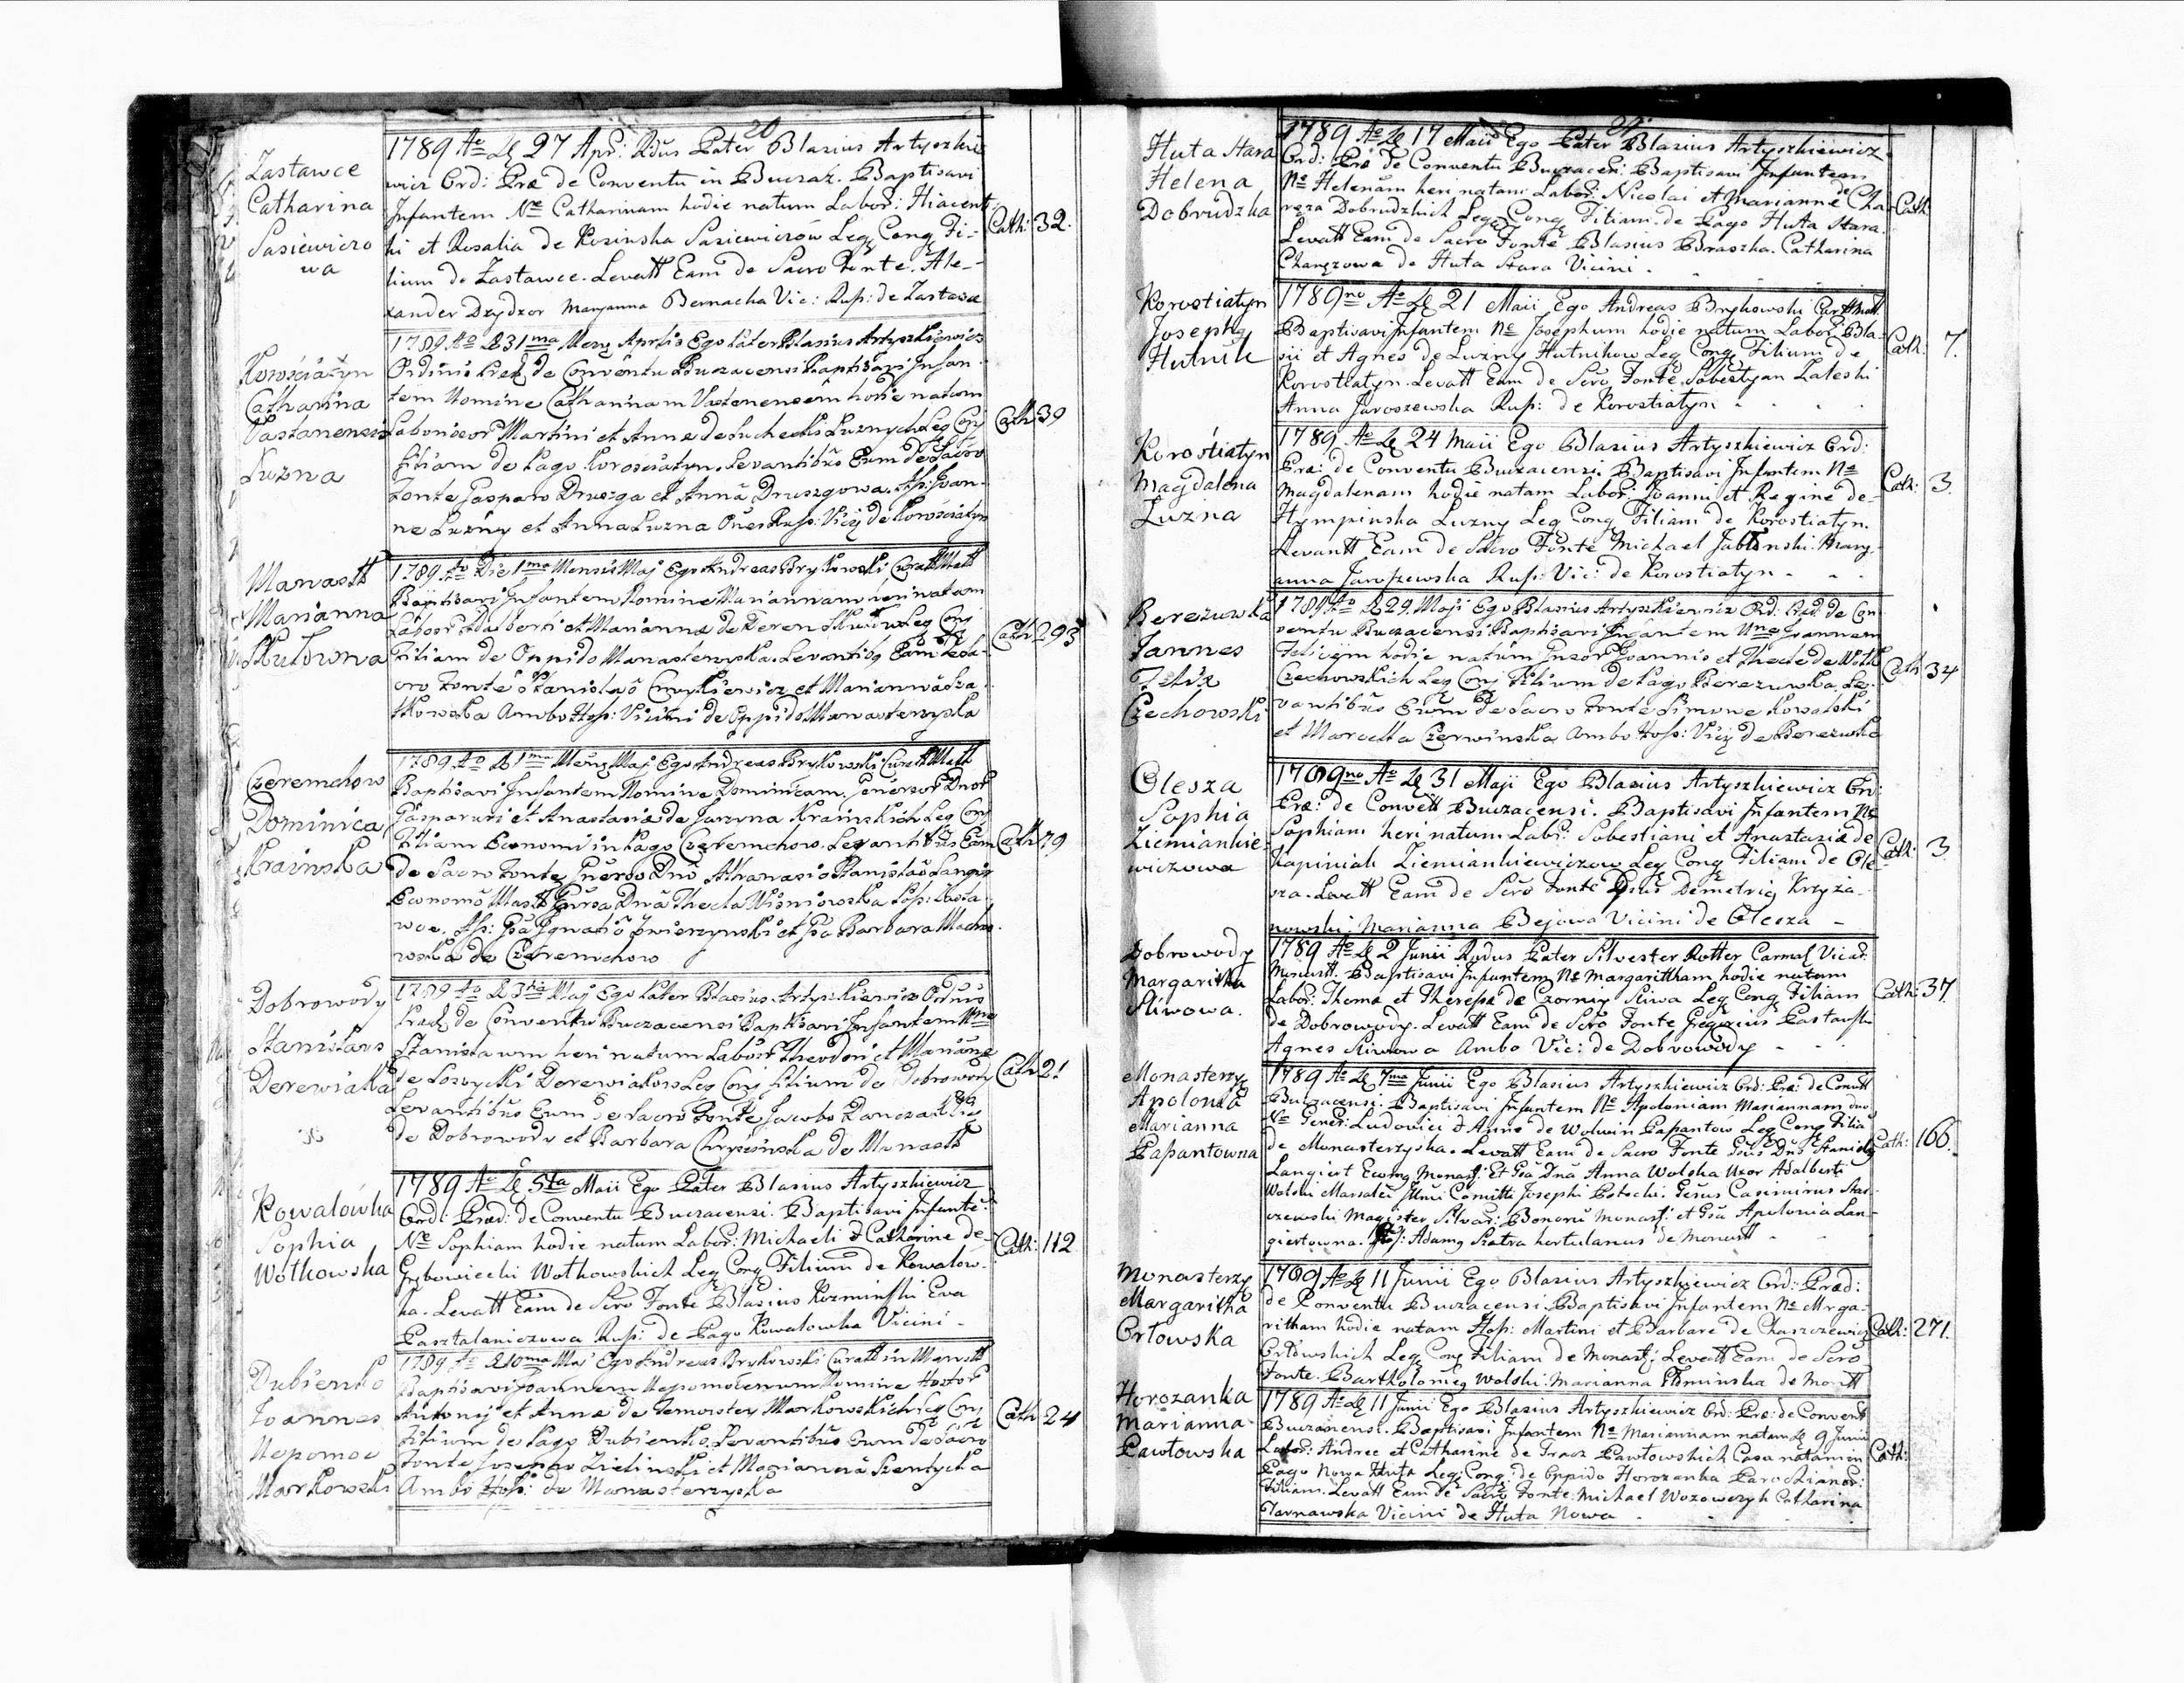 20
Zastawce
Catharina
Sasiewiczo
wa
1789 Ao De 27 Apr: Rdus Pater Blasius Artyszkie
wicz Ord: Præ de Conventu in Buczaz. Baptisavi
Infantem Ne Catharinam hodie natum Labor: Hiacent
hi et Rosalia de Rosinska Sasiewiczów Leg Conj Fi-
lium de Zastawce. Levatt Eam de Sacro Fonte. Ale-
xander Dzydzor Maryanna Bernacka Vic: Rusp: de Zastawce
Cath: 32.
Korościatyn
Catharina
Vastanensis
Luzna
1789 Ao D 31ma Mens Aprlis Ego Pater Blasius Artyszkiewicz
Ordinis Præd de Conventu Buczacensi Baptisavi Infan
tem Nomine Catharinam Vastenensem hodie natam
Laboriosor Martini et Anne de Suchecki Luznych Leg Conj
filiam de Pago Korosciatyn. Levantibus Eum de Sacro
Fonte Gasparo Druszga et Anna Druszgowa. Ass: Joan-
ne Luzny et Anna Luzna Omes Rusp: Vicij de Korosciatyn
Cath 39
Manastt
Marianna
Skutowna
1789 Ao Die 1ma Mensis Maj Ego Andreas Brykowski Curatt Mastt
Baptisavi Infantem Nomine Mariannam heri natam
Labosr Adalberti et Marianna de Deren Leg Conj
Filiam de Oppido Manasterzyska. Levantibg Eam de Sa-
cro Fonte Stanislaō et Marianna Sza
tkowska Ambo Hosp: Vicini de Oppido Manasterzyska
Cath 293
Czeremchow
Dominica
Krainska
1789 Ao D 1ma Mens Maj Ego Andreas Brykowski Curatt Mastt
Baptisavi Infantem Nomine Dominicam. Generosr Dnor
Gasparuri et Anastasiæ de Jarzyna Krainskich Leg Conj
Filiam Economi in Pago Czeremchow. Levantibus Eam
de Sacro Fonte Gneroso Dnō Athanasio Stanislaō Langier
Economō Mastt Gnrsa Dnā Thecla Wisniowska Posp: Zasta
wce. Ass: Gsā Ignatiō Zwierzynski et Gsā Barbara Macho
wska de Czeremchow
Cath 79
Dobrowody
Stanislaus
Derewiaka
1789 Ao D 3tia Maj Ego Pater Blasius Artyszkiewicz Ordinis
Præd de Conventu Buczacensi Baptisavi Infantem Nne
Stanislaum heri natum Labosr Theodori et Marianne
de Loszycki Derewiakow Leg Conj filium de Dobrowody
Levantibus Eum de Sacro Fonte Jacobo Danczak Vic
de Dobrowody et Barbara Chrysinska de Manastt
Cath 21
Kowalówka
Sophia
Wotkowska
1789 Ao De 5ta Maii Ego Pater Blasius Artyszkiewicz
Ord: Præd: de Conventu Buczacensi. Baptisavi Infante:
Ne Sophiam hodie natum Labor: Michaeli & Catharine de
Grębowiecki Wotkowskich Leg Conj Filium de Kowalow-
ka. Levatt Eam de Scro Fonte Blasius Kozminski Eva
Pasztalaniczowa Rusp: de Pago Kowalowka Vicini -
Cath: 112
Dubienko
Joannes
Nepomoc
Markowski
1789 Ao D 10ma Maj Ego Andreas Brykowski Curatt in Manastt
Baptisavi Joannem Nepomocenum Nomine Hostor
Antonij et Anna de Temoistey Markowskich Leg Conj
Filium de Pago Dubienko. Levantibus Eum de Sacro
Fonte Josepho Zielinski et Marianna Szentycka
Ambo Hosp: de Manasterzyska
Cath 24
Huta Stara
Helena
Dobrudzka
1789 Ao De 17 Maii Ego Pater Blasius Artyszkiewicz
Ord: Præ de Conventu Buczacen: Baptisavi Infantem
Ne Helenam heri natam Labor: Nicolai et Marianne de Cha
ręza Dobrudzkich Leg Conj Filiam. de Pago Huta Stara.
Levatt Eam de Sacro Fonte Blasius Braszka. Catharina
Charęzowa de Huta Stara Vicini.
Cath
Korostiatyn
Josephg
Hutnik
1789no Ao De 21 Maii Ego Andreas Brykowski Curtt Mastt.
Baptisavi Infantem Ne Josephum hodie natum Labor Bla-
sii et Agnes de Luzny Hutnikow Leg Conj Filium de
Korostiatyn. Levatt Eam de Scro Fonte Sobestyan Zaleski
Anna Jaroszewska Rusp: de Korostiatyn
Cath: 7.
Korostiatyn
Magdalena
Luzna
1789 Ao De 24 Maii Ego Blasius Artyszkiewicz Ord:
Præ: de Conventu Buczacensi Baptisavi Infantem Ne
Magdalenam hodie natam Labor: Joanni et Regine de
Hympinska Luzny Leg Conj Filiam de Korostiatyn.
Levantt Eam de Sacro Fonte Michael Jablonski. Mary-
anna Jaroszewska Rusp: Vic: de Korostiatyn
Cath: 3.
Berezuwka
Jannes
Felix
Czechowski
1789 Ao D 29. Maji Ego Blasius Artyszkiewicz Ord: Præd. de Con
ventu Buczacensi Baptisavi Infantem Nne Joannem
Felicem hodie natum Gnsor Joannis et Thecle de Wolk
Czechowskich Leg Conj filium de Pago Berezuwka. Le-
vantibus Eum de Sacro Fonte Simone Kowalski
et Marcella Czerwinska Ambo Hosp: Vicij de Berezuwka
Cath 34
Olesza
Sophia
Ziemiankie-
wiczowa
1789no Ao De 31 Maji Ego Blasius Artyszkiewicz Ord:
Præ: de Convett Buczacensi. Baptisavi Infantem Ne
Sophiam heri natum. Labr: Sobestiani et Anastasiæ de
Kapiniak Ziemiankiewiczow Leg Conj Filiam de Ole
sza. Levatt Eam de Scro Fonte Gsus Demetrig Krzyża-
nowski. Marianna Bejowa Vicini de Olesza -
Cath: 3.
Dobrowody
Margaritha
Sliwowa.
1789 Ao De 2 Junii Rndus Pater Silvester Rotter Carmel Vicar:
Monastt. Baptisavi Infantem Ne Margarittham hodie natum
Labor: Thoma et Theresæ de Czorniy Sliwa Leg Conj Filiam
de Dobrowody. Levatt Eam de Scro Fonte Gregorius Pastawski
Agnes Sliwowa Ambo Vic: de Dobrowody -
Cath: 37.
Monasterzy
Apolonia
Marianna
Papantowna
1789 Ao De 7ma Junii Ego Blasius Artyszkiewicz Ord: Præ: de Conutt
Buczacensi. Baptisavi Infantem Ne Apoloniam Mariannam duo
No Gener: Ludovici & Anne de Wolwin Papantow Leg Conj Filia
de Monasterzyska. Levatt Eam de Sacro Fonte Gsus Dns Stanislg
Langiert Ecomg Monast: Et Gsa Dnā Anna Wolska Uxor Adalberti
Wolski Marsaleii Illmi Comitti Josephi Potocki. Gesus Casimirus Star-
czewski Magister Silvar: Bonorū Monast: et Gsa Apolonia Lan-
giertowna. Adamg Piatra hortulanus de Monastt
Cath: 166.
Monasterzy
Margaritha
Orlowska
1789 Ao De 11 Junii Ego Blasius Artyszkiewicz Ord: Præd:
de Conventu Buczacensi. Baptisavi Infantem Ne Mrga-
ritham hodie natam Hosp: Martini et Barbare de Chaszczewicz
Orlowskich Leg Conj Filiam de Monast: Levatt Eam de Scro
Fonte. Bartholomeg Wolski. Marianna Flominska de Montt
Cath: 271.
Horozanka
Marianna
Pawlowska
1789 Ao De 11 Junii Ego Blasius Artyszkiewicz Ord: Præ: de Conventt
Buczacensi. Baptisavi Infantem Ne Mariannam natam De 9 Junii
Labor: Andree et Catharine de Tracz Pawlowskich Casa natam in
Pago Nowa Huta Leg: Conj: de Oppido Horozanka Parochianor:
Filiam. Levatt Eam de Sacro Fonte. Michael Wozowczyk Catharina
Tarnawska Vicini de Huta Nowa
Cath: